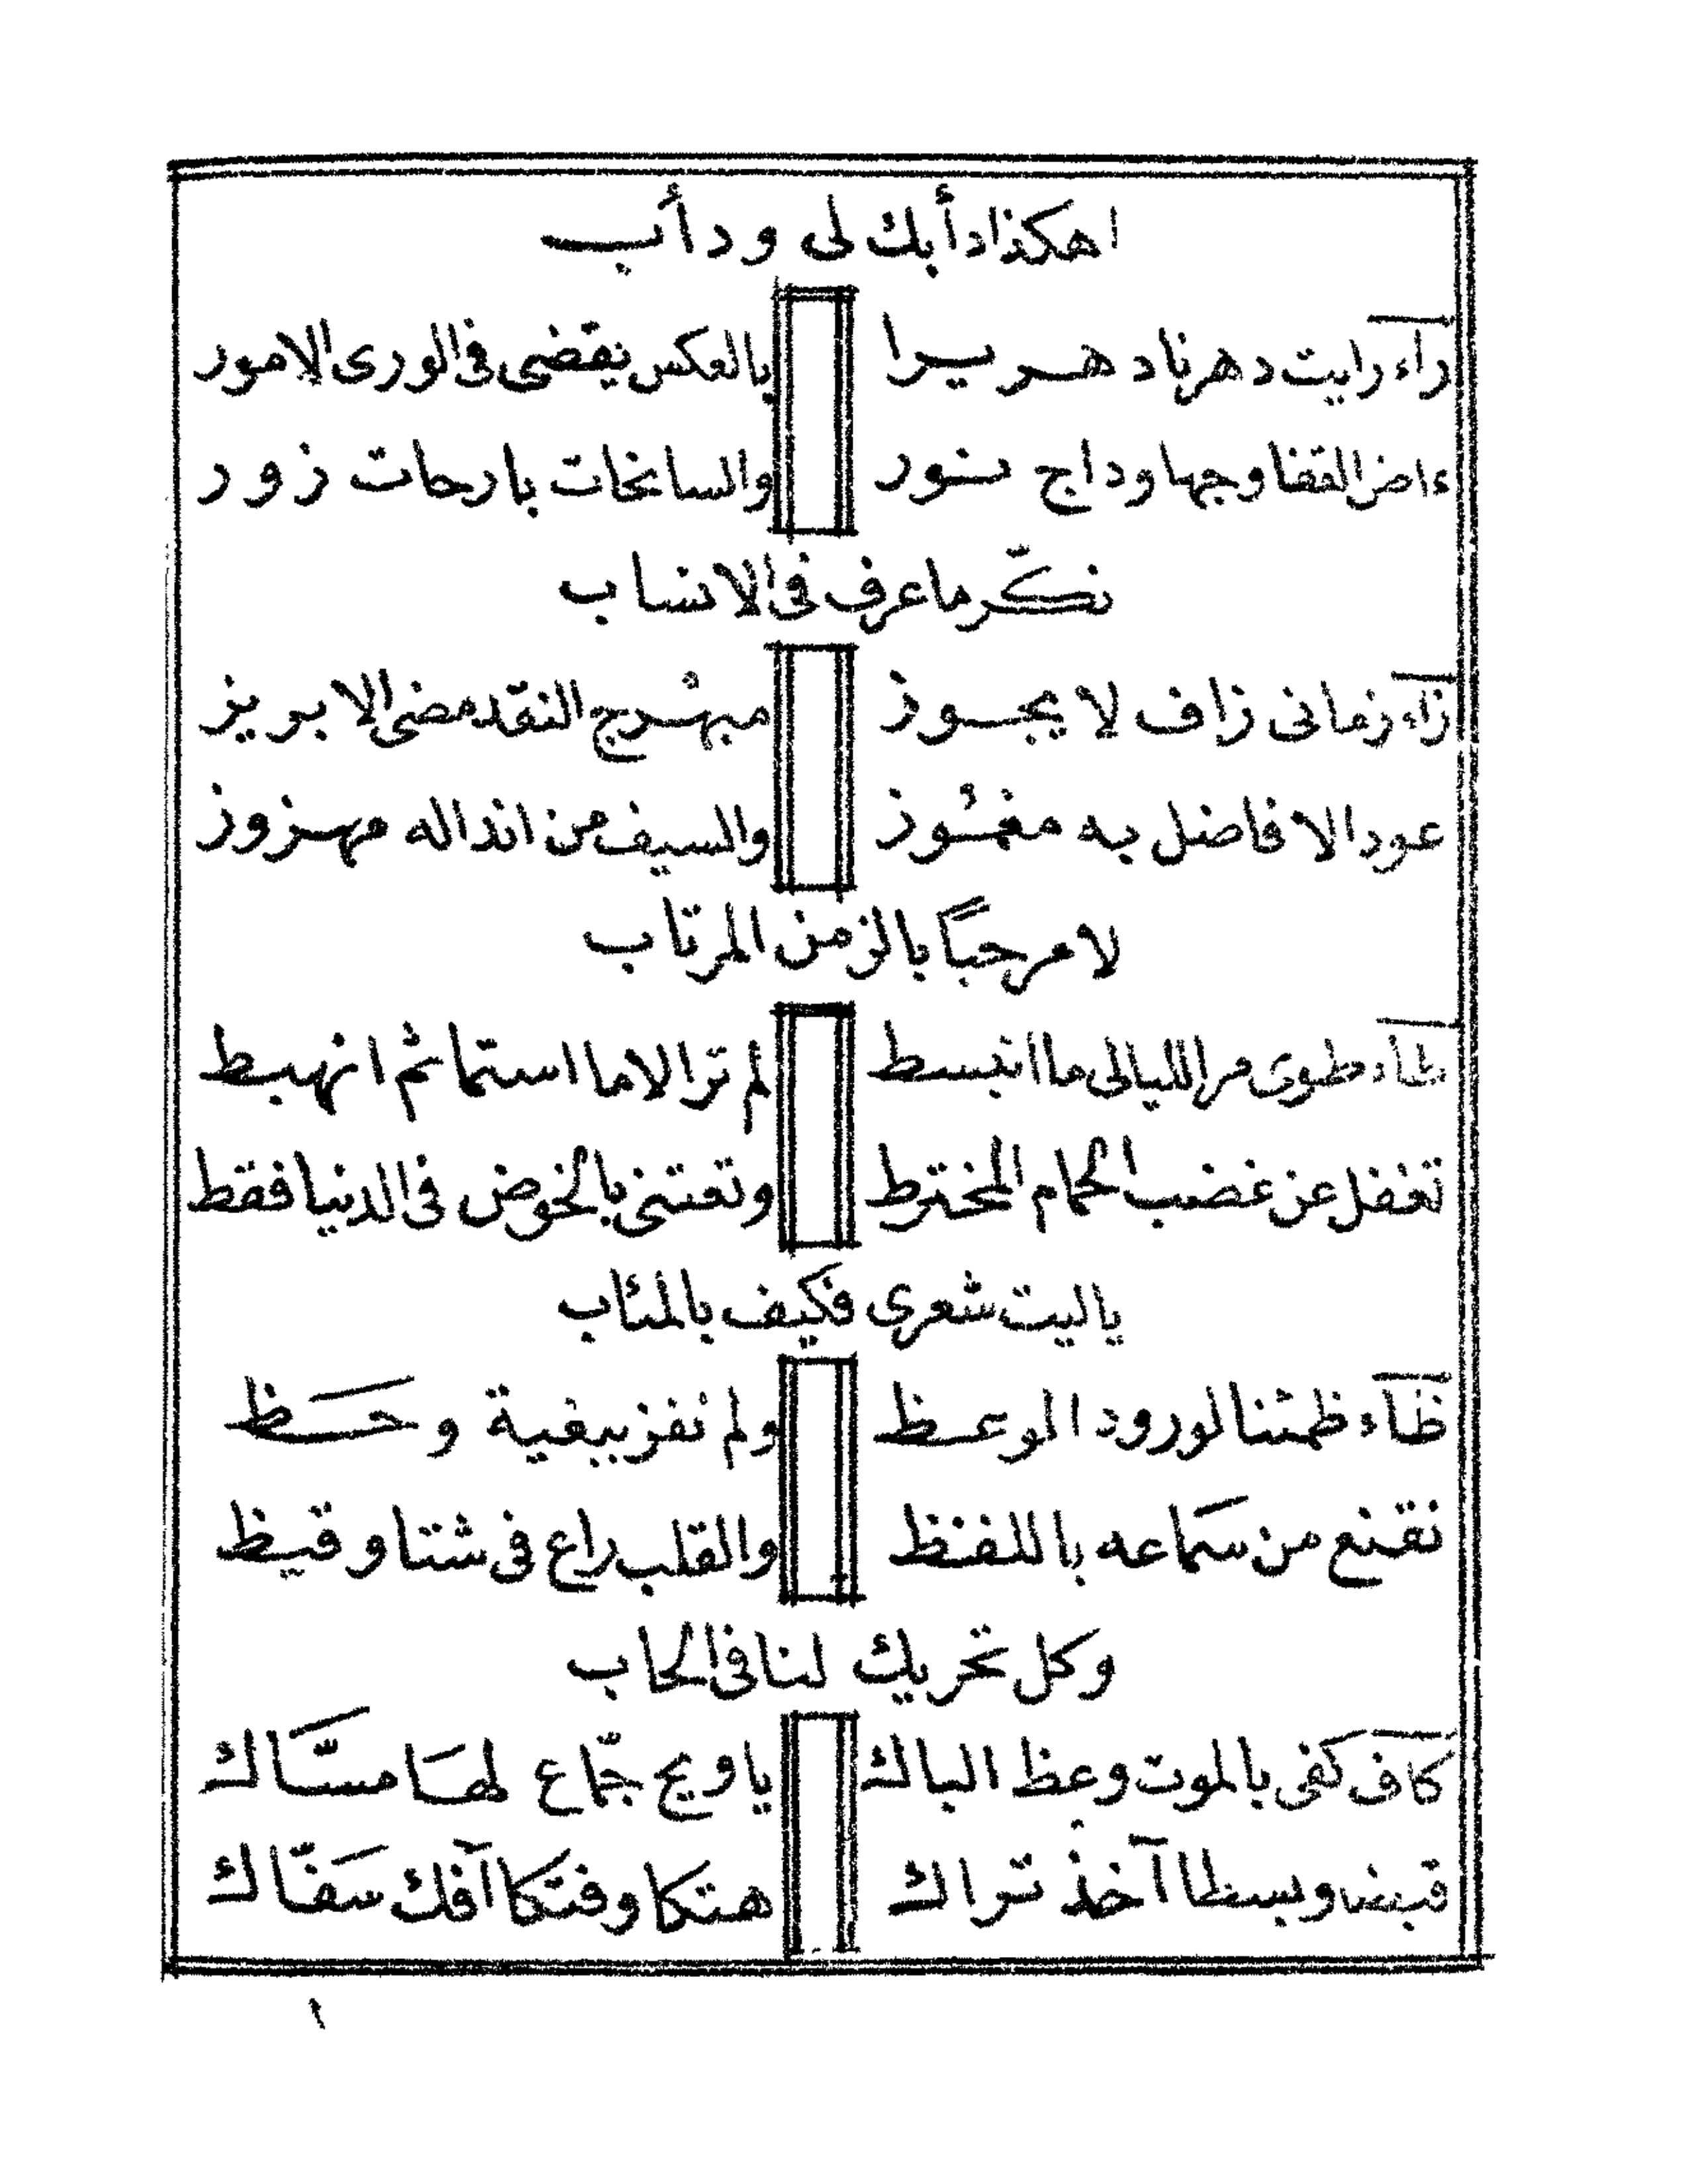 اهكذا دأبك لى ودأب
راء رايت دهرنا دهريرا بالعكس يقضى فى الورى الامور
ءاض القفا وجها وداج نور والسانحات بارحات زور
نكّر ما عرف فى الانساب
زاء زمانى زاف لا يجوز مبهرج النقد مضى الابريز
عود الافاضل به مغموز والسيف من انداله مهزوز
لا مرحباً بالزمن المرتاب
طاء طوى مر الليالى ما انبسط لم تر الا ما استما ثم انهبط
تغفل عن غضب الحمام المخترط وتعتنى بالخوض فى الدنيا فقط
ياليت شعرى فكيف بالمئاب
ظاء ظمئنا لورود الوعظ ولم نفز ببغية وحظ
نقنع من سماعه باللفظ والقلب راع فى شتا وقيظ
وكل تحريك لنا فى الحاب
كاف كفى بالموت وعظ الباك ياويح جمّاع لها مسّاك
قبضا وبسطا آخذ تراك هتكا وفتكا آفك سفّاك
١